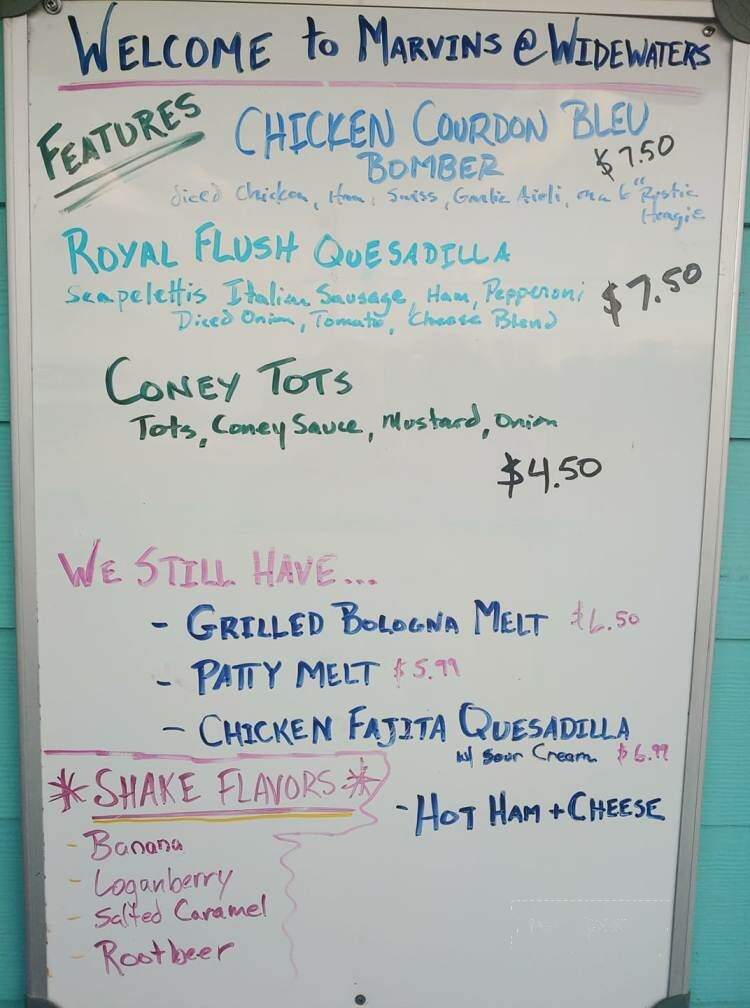 WELCOME to MARVINS @ WIDEWATERS
FEATURES
CHICKEN COURDON BLEU
BOMBER
$7.50
diced Chicken, Ham, Swiss, Garlic Aioli, on a 6" Rustic
Hoagie
ROYAL FLUSH QUESADILLA
Scapelettis Italian Sausage, Ham, Pepperoni
$7.50
Diced Onion, Tomato, Cheese Blend
CONEY TOTS
Tots, Coney Sauce, Mustard, Onion
$4.50
WE STILL HAVE...
- GRILLED BOLOGNA MELT $6.50
- PATTY MELT $5.99
- CHICKEN FAJITA QUESADILLA
w/ Sour Cream $6.99
- HOT HAM + CHEESE
* SHAKE FLAVORS *
- Banana
- Loganberry
- Salted Caramel
- Rootbeer